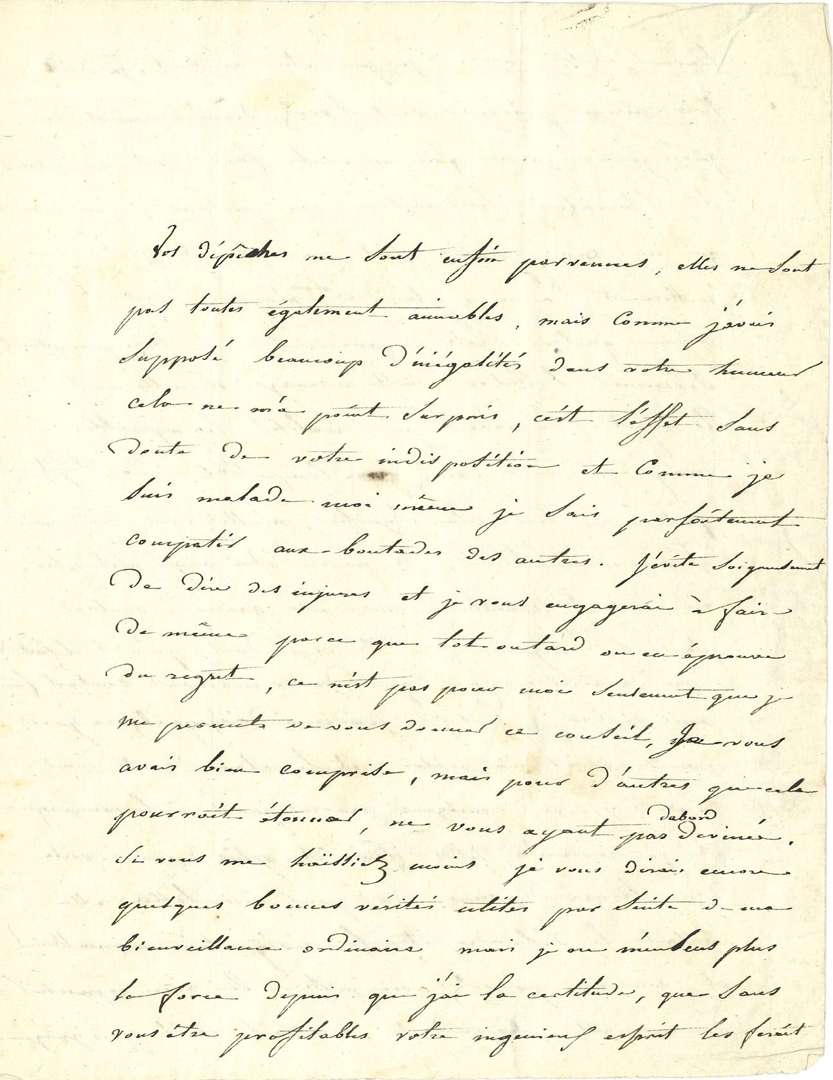 Vos dépêches me sont enfin parvenues, elles ne sont
pas toutes également aimables, mais comme j'avais
supposé beaucoup d'inégalités dans votre humeur
cela ne m'a point surpris, c'est l'effet sans
doute de votre indisposition et comme je
suis malade moi même je sais parfaitement
compatir aux boutades des autres. J'évite soigneusement
de dire des injures et je vous engagerai à fair
de même parce que tot ou tard on en éprouve
du regret, ce n'est pas pour moi seulement que je
me permets de vous donner ce conseil, Je vous
avais bien comprise, mais pour d'autres que cela
pourroit étonner, ne vous ayant pas dabord devinée.
Si vous me haïssiez moins je vous dirais encore
quelques bonnes vérités utiles par suite de ma
bienveillance ordinaire mais je ne m'en sens plus
la force depuis que j'ai la certitude, que sans
vous être profitables votre ingenieux esprit les feroit